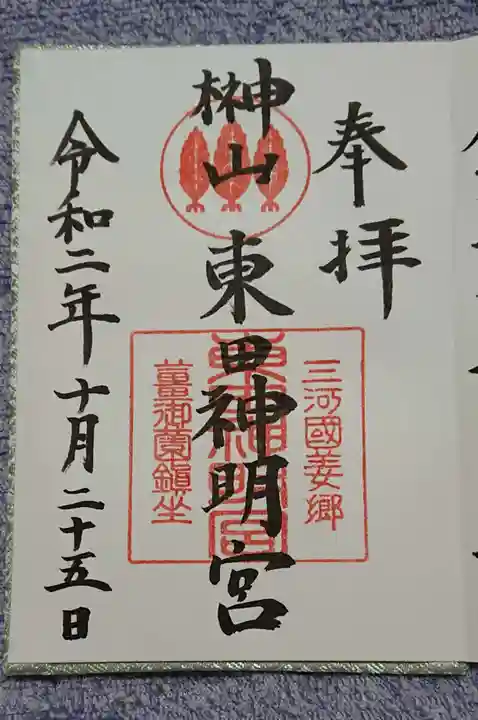 奉拝
榊山 東田神明宮
三河國姜郷
薑御園鎮坐
令和二年十月二十五日